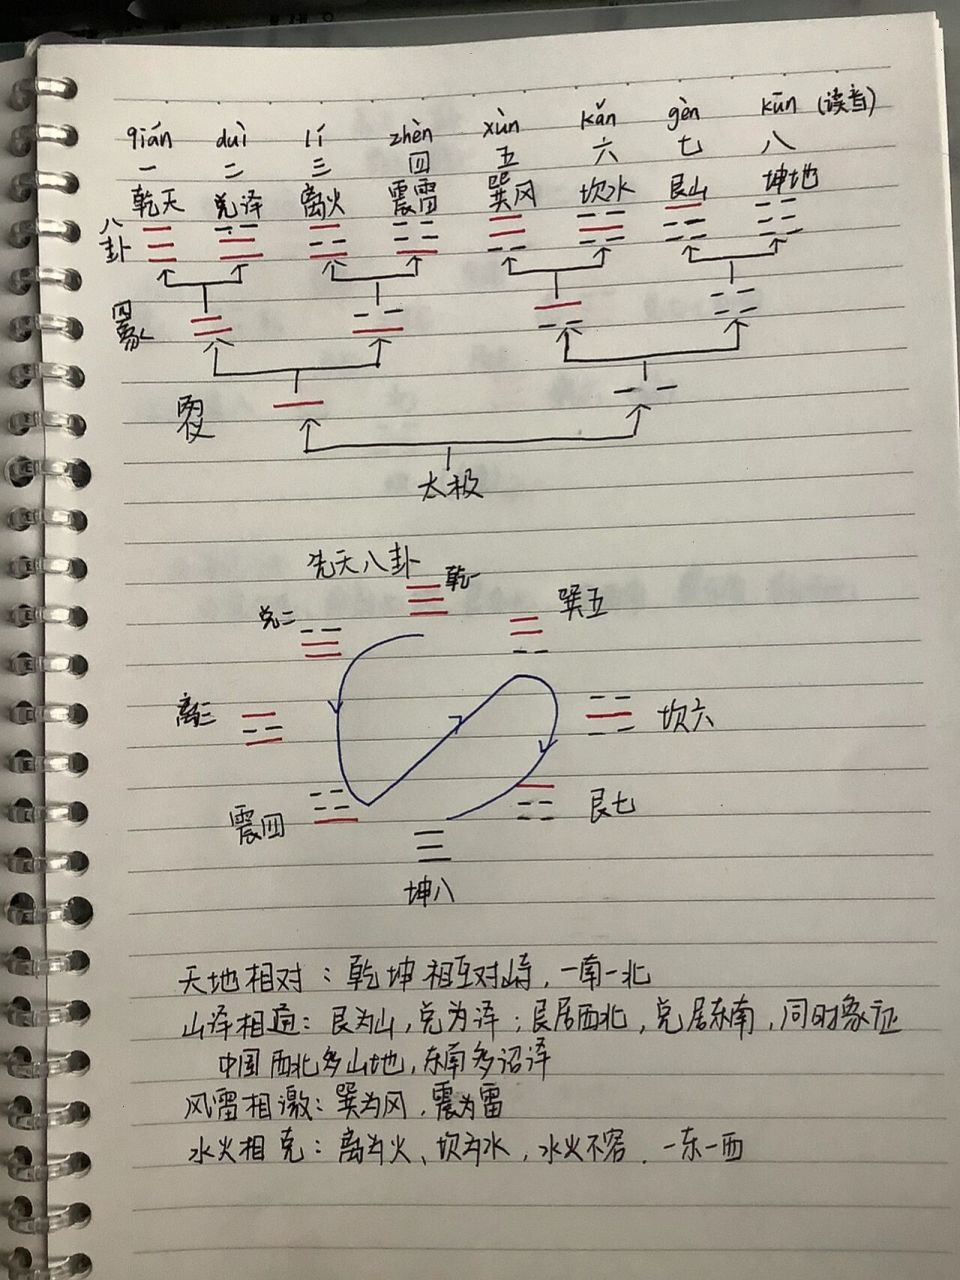 qián duì lí zhèn xùn kǎn gèn kūn (读音)
一 二 三 四 五 六 七 八
乾天 兑泽 离火 震雷 巽风 坎水 艮山 坤地
八卦
四象
两仪
太极
先天八卦
乾一
兑二
巽五
离三
坎六
震四
艮七
坤八
天地相对：乾坤相互对峙，一南一北
山泽相通：艮为山，兑为泽；艮居西北，兑居东南，同时象征
中国西北多山地，东南多沼泽
风雷相激：巽为风，震为雷
水火相克：离为火、坎为水，水火不容．一东一西